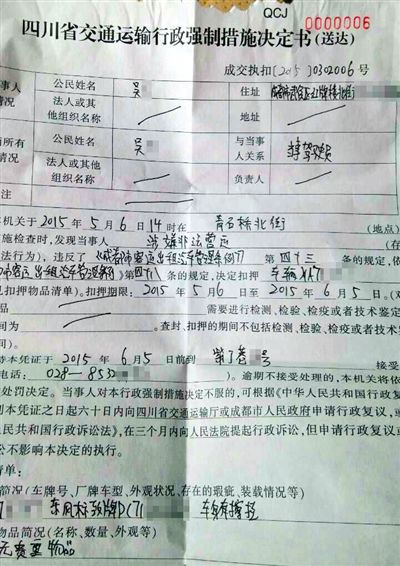 QCJ
0000006
四川省交通运输行政强制措施决定书(送达)
成交执扣〔2015〕0302006号
事人
情况
公民姓名
吴
住址
法人或其
他组织名称
地址
所有
情况
公民姓名
吴
与当事
人关系
法人或其他
组织名称
负责人
注
机关于2015年5月6日14时在 青石桥北街 (地点)
施检查时,发现当事人 涉嫌非法营运 (存
法行为),违反了《成都市客运出租汽车管理条例》第四十三条的规定,依
市客运出租汽车管理条例》第四十八条的规定,决定扣押 车辆
扣押物品清单)。扣押期限:2015年5月6日至2015年6月5日。(对
需要进行检测、检验、检疫或者技术鉴定
间为 。查封、扣押的期间不包括检测、检验、检疫或者技术鉴
持本凭证于2015年6月5日前到 号 接受
电话:028-8532 )。逾期不接受处理的,本机关将依
处罚决定。当事人对本行政强制措施决定不服的,可根据《中华人民共和国行政复议
到本凭证之日起六十日内向四川省交通运输厅或成都市人民政府申请行政复议,或
民共和国行政诉讼法》,在三个月内向人民法院提起行政诉讼,但申请行政复议或
讼不影响本决定的执行。
清单:
简况(车牌号、厂牌车型、外观状况、存在的瑕疵、装载情况等)
71 东风标致牌DC71 车身有擦挂
物品简况(名称、数量、外观等)
无贵重物品